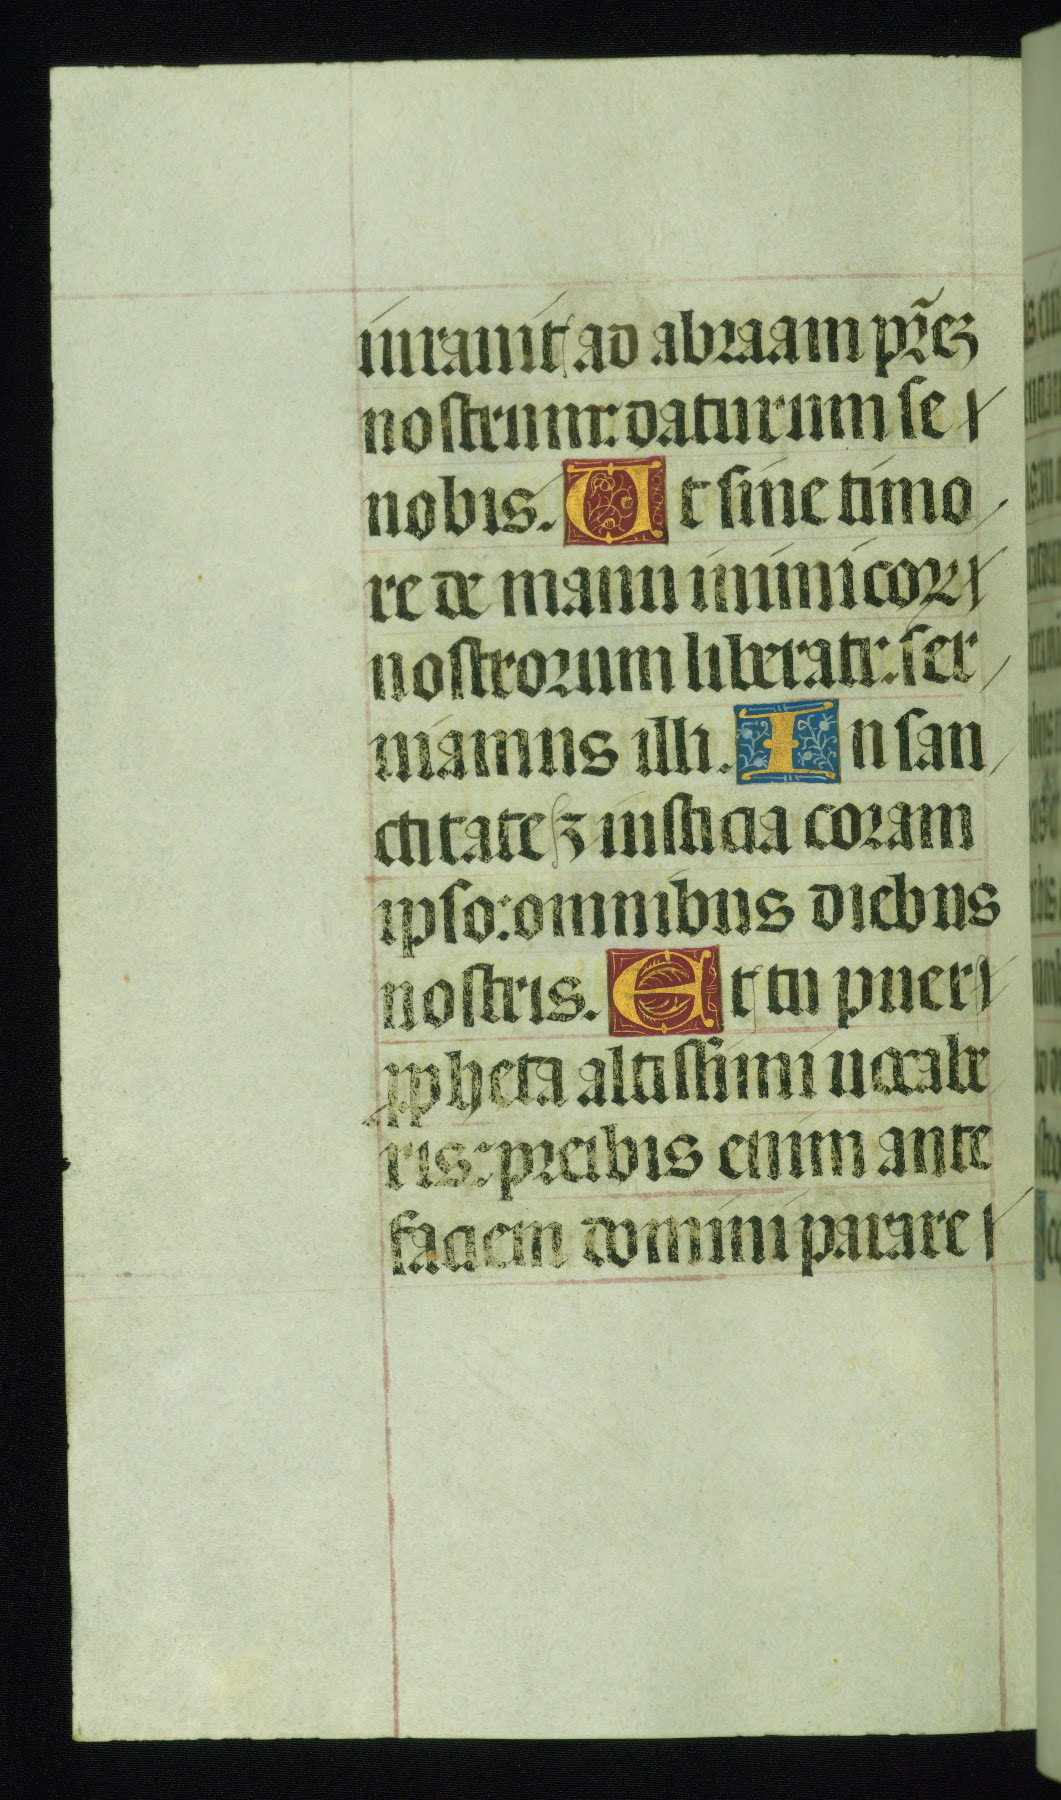 iurauit ad abraam pr̃eʒ
nostrum: daturum se
nobis. Ut sine timo
re de manu inimicoꝝ
nostrorum liberati: ser
uiamus illi. In san
ctitate ⁊ iusticia coram
ipso: omnibus diebus
nostris. Et tu puer
ꝓpheta altissimi uocabe
ris: preibis enim ante
faciem domini parare